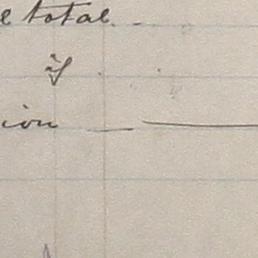 e total. -
if
ion — —